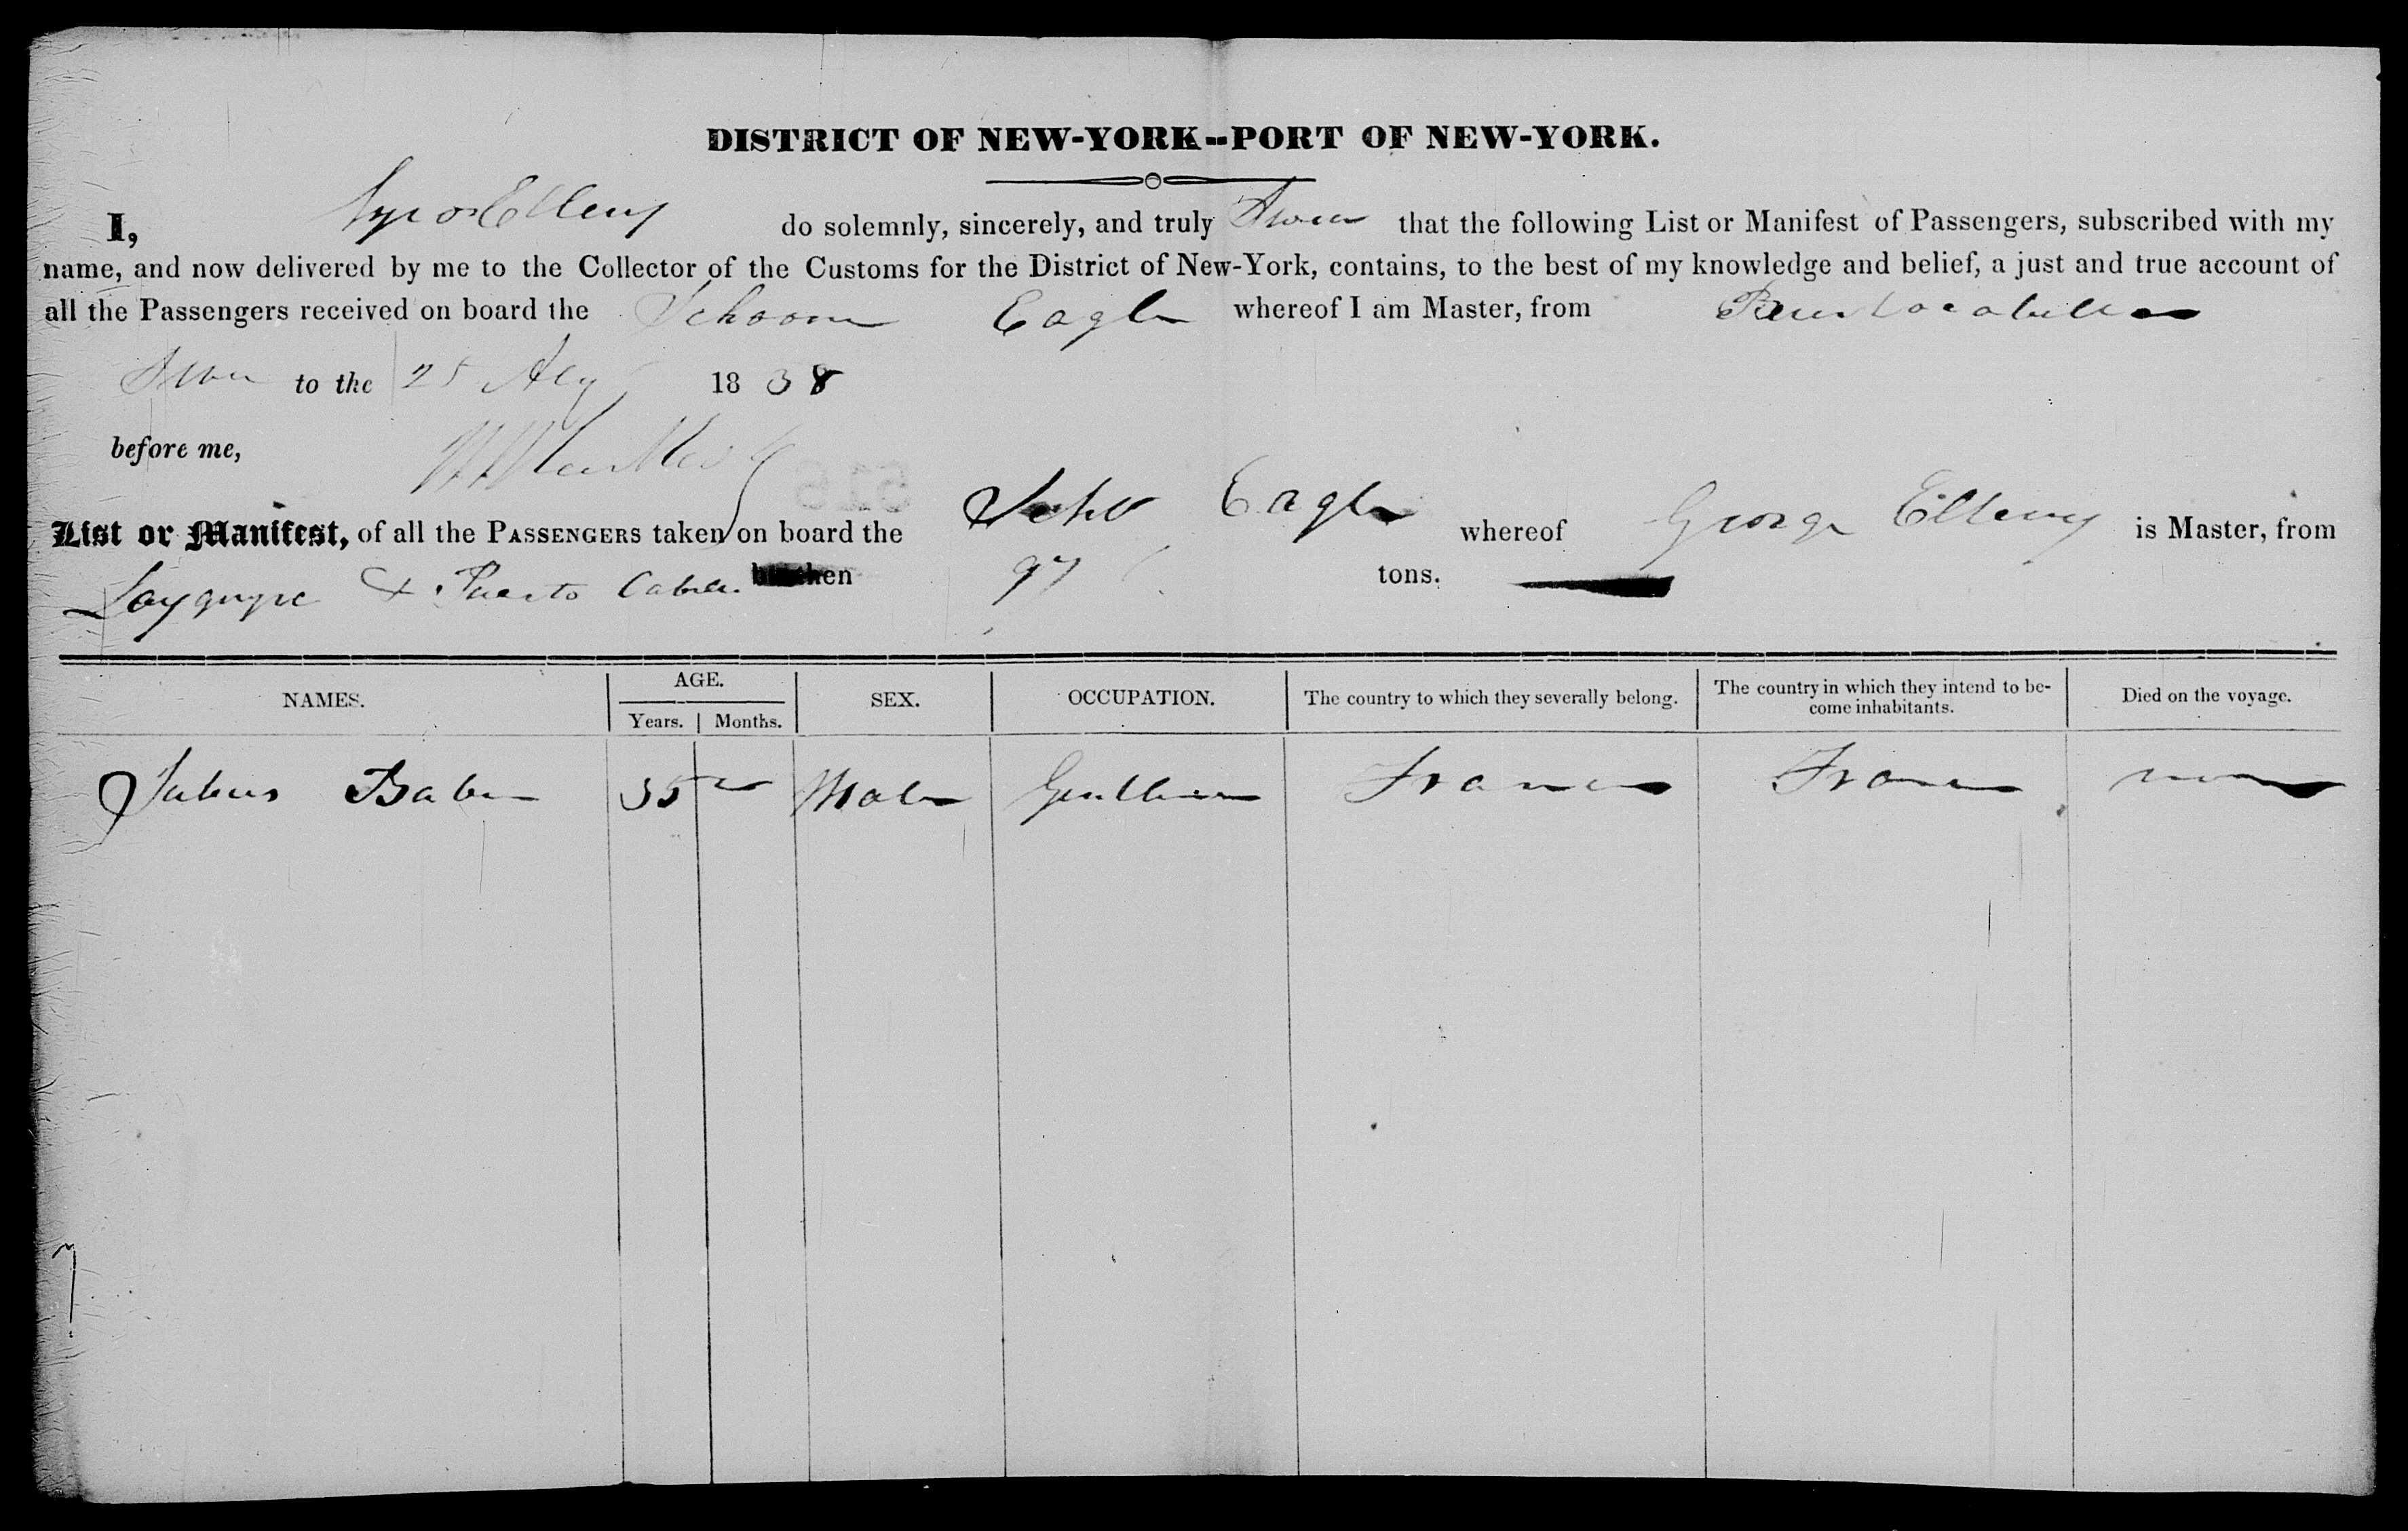 DISTRICT OF NEW-YORK--PORT OF NEW-YORK.
I, Ellery do solemnly, sincerely, and truly Swear that the following List or Manifest of Passengers, subscribed with my
name, and now delivered by me to the Collector of the Customs for the District of New-York, contains, to the best of my knowledge and belief, a just and true account of
all the Passengers received on board the Schooner Eagle whereof I am Master, from
to the 25 1838
before me,
List or Manifest, of all the PASSENGERS taken on board the Schr Eagle whereof George Ellery is Master, from
Layguyre & Puerto Cabello burthen 97 tons.
NAMES. AGE. Years. Months. SEX. OCCUPATION. The country to which they severally belong. The country in which they intend to become inhabitants. Died on the voyage.
35 Male Gentleman France France none